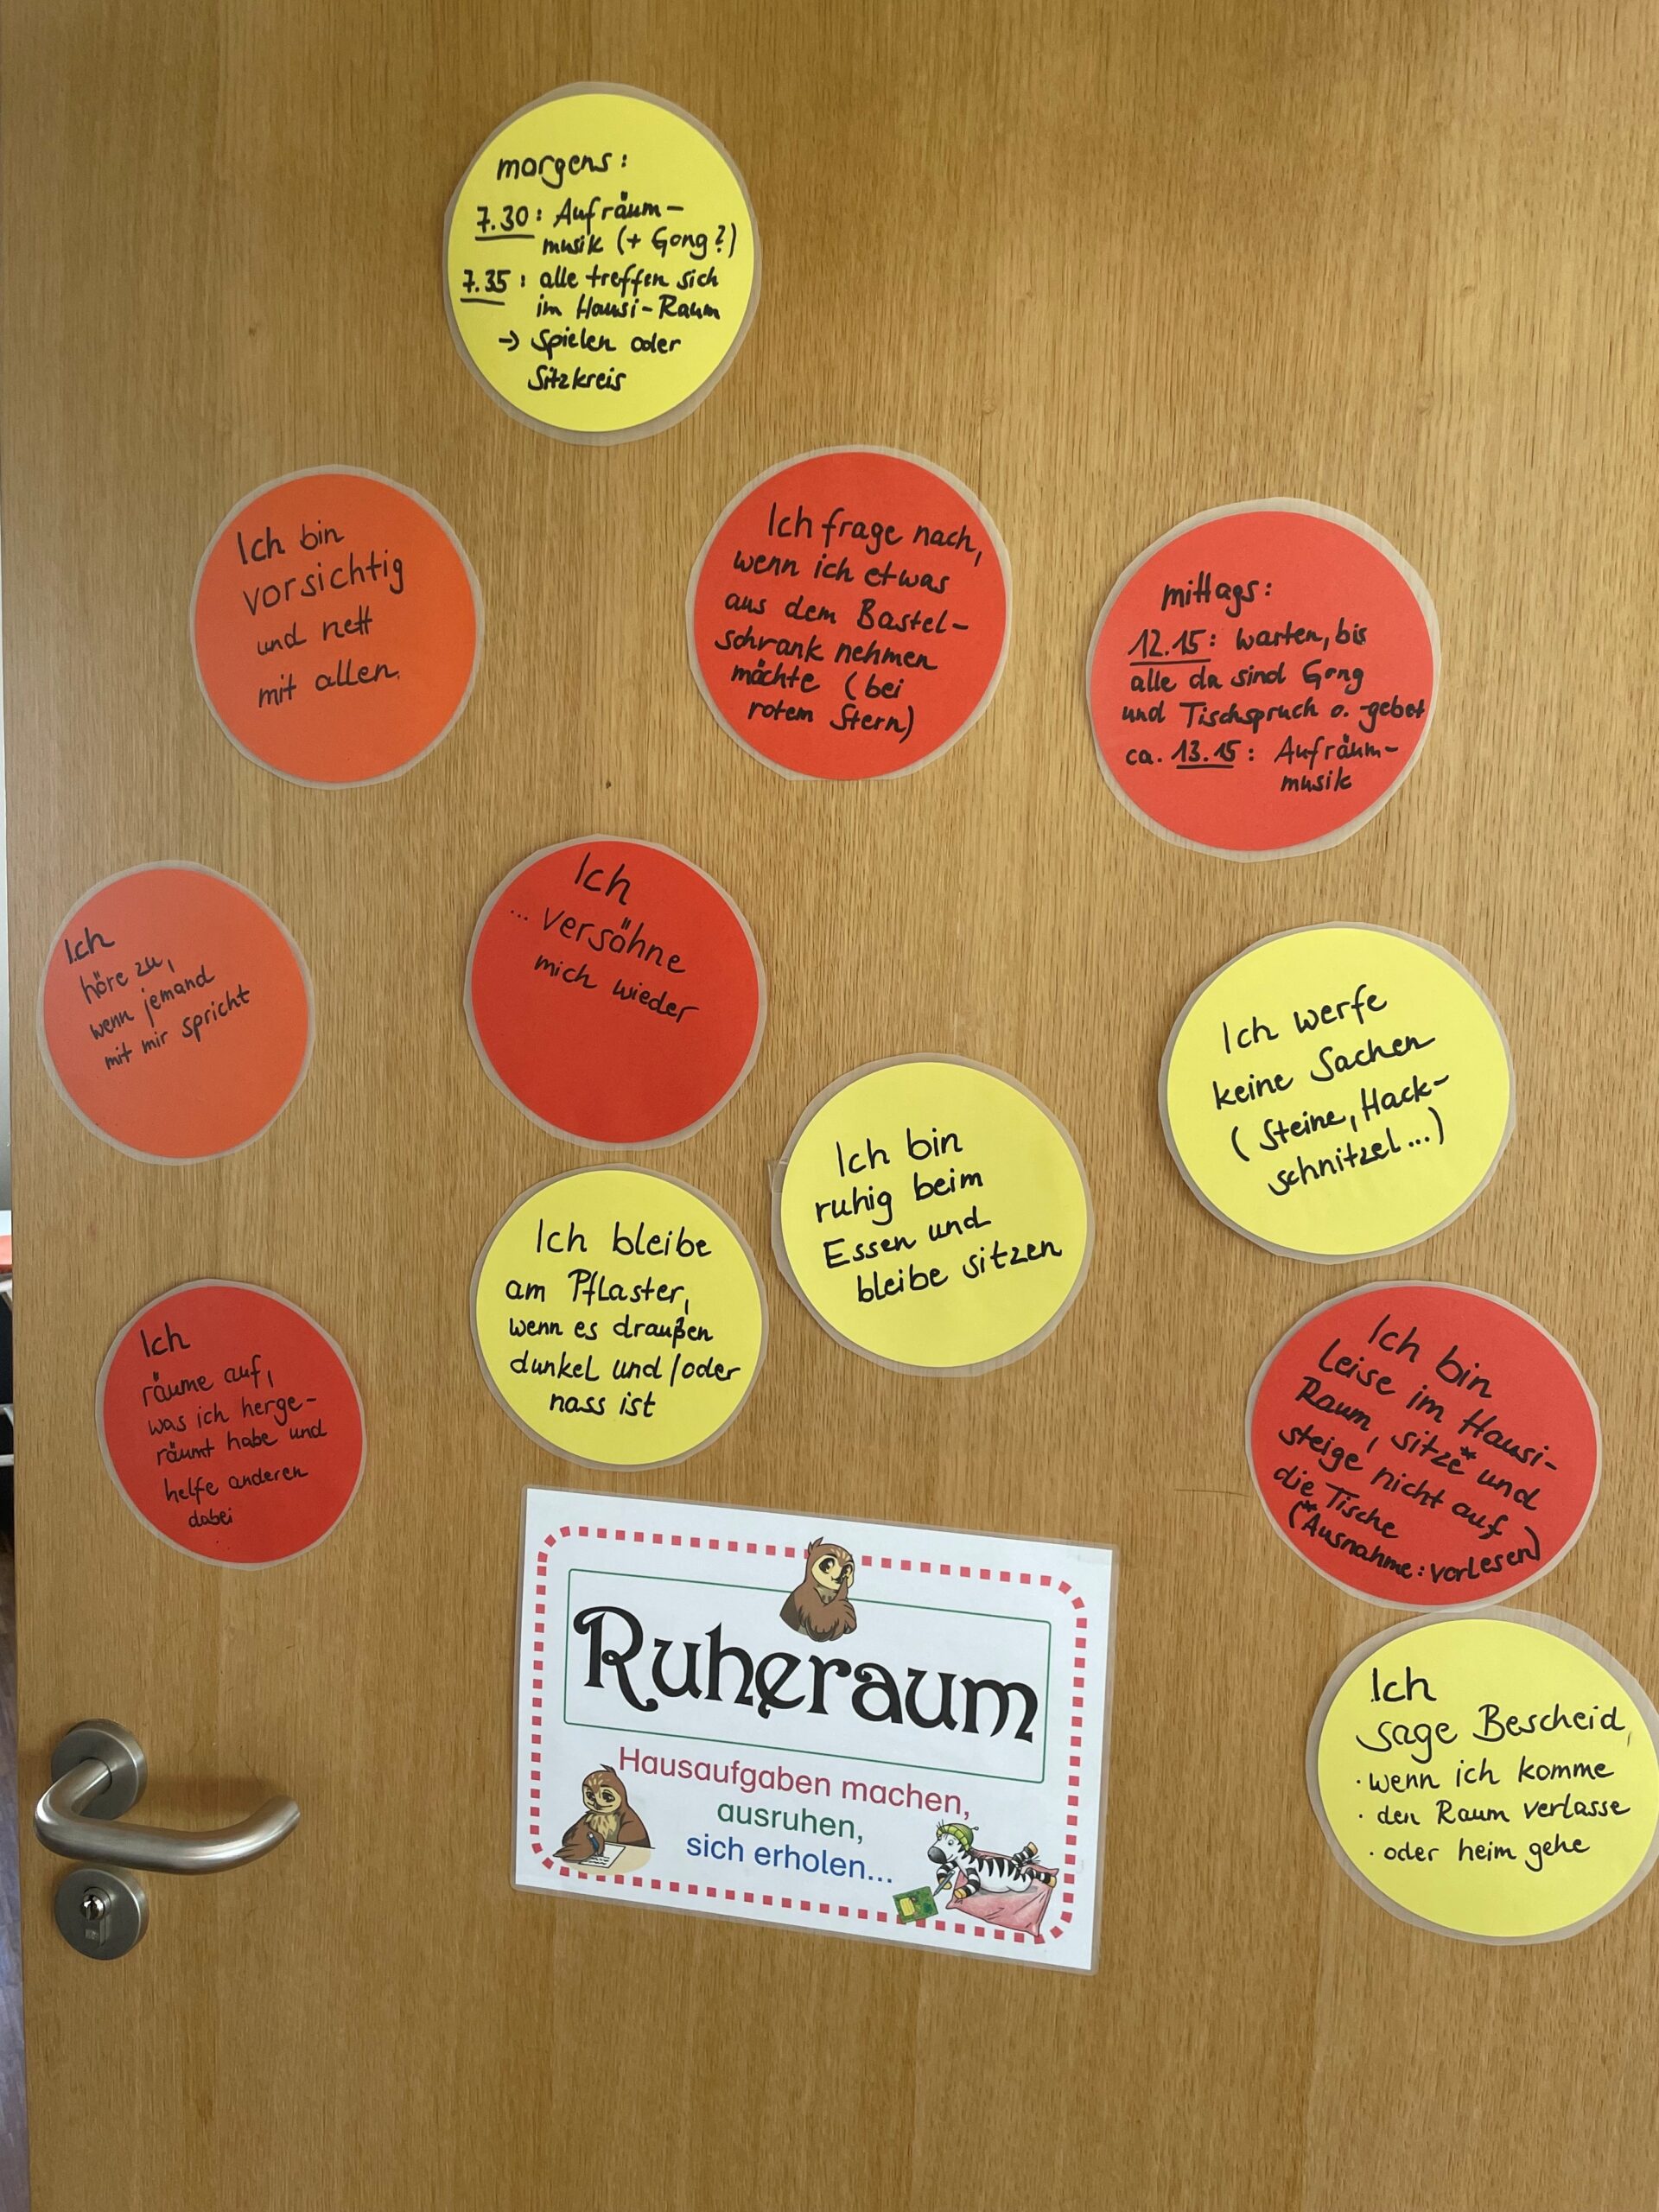 morgens:
7.30: Aufräum-
musik (+ Gong?)
7.35: alle treffen sich
im Hausi-Raum
→ Spielen oder
Sitzkreis
Ich bin
vorsichtig
und nett
mit allen.
Ich frage nach,
wenn ich etwas
aus dem Bastel-
schrank nehmen
möchte (bei
rotem Stern)
mittags:
12.15: warten, bis
alle da sind Gong
und Tischspruch o. -gebet
ca. 13.15: Aufräum-
musik
Ich
höre zu,
wenn jemand
mit mir spricht
Ich
... versöhne
mich wieder
Ich werfe
keine Sachen
(Steine, Hack-
schnitzel...)
Ich bin
ruhig beim
Essen und
bleibe sitzen
Ich bleibe
am Pflaster,
wenn es draußen
dunkel und/oder
nass ist
Ich
räume auf,
was ich herge-
räumt habe und
helfe anderen
dabei
Ich bin
leise im Hausi-
Raum, sitze* und
steige nicht auf
die Tische
(*Ausnahme: vorlesen)
Ruheraum
Hausaufgaben machen,
ausruhen,
sich erholen...
Ich
sage Bescheid,
· wenn ich komme
· den Raum verlasse
· oder heim gehe